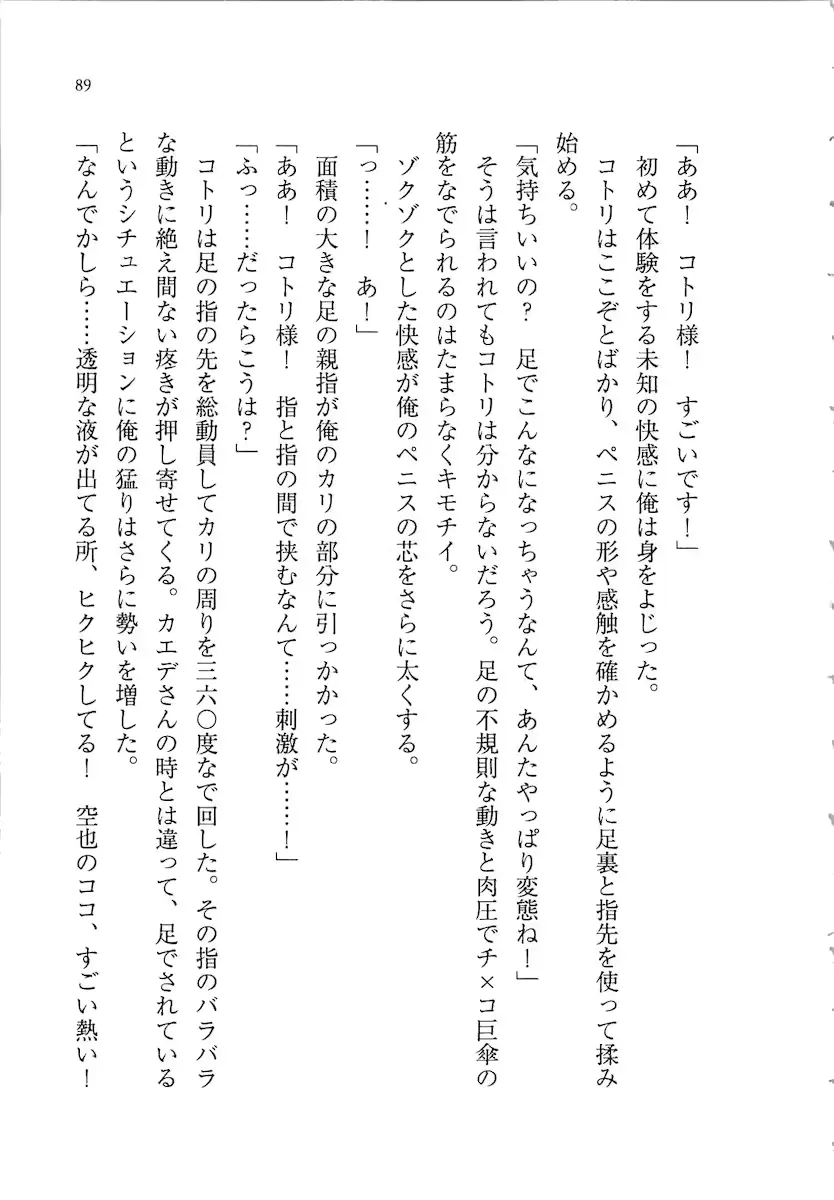 89
「ああ！　コトリ様！　すごいです！」
初めて体験をする未知の快感に俺は身をよじった。
コトリはここぞとばかり、ペニスの形や感触を確かめるように足裏と指先を使って揉み
始める。
「気持ちいいの？　足でこんなになっちゃうなんて、あんたやっぱり変態ね！」
そうは言われてもコトリは分からないだろう。足の不規則な動きと肉圧でチ×コ巨傘の
筋をなでられるのはたまらなくキモチイ。
ゾクゾクとした快感が俺のペニスの芯をさらに太くする。
「っ……！　あ！」
面積の大きな足の親指が俺のカリの部分に引っかかった。
「ああ！　コトリ様！　指と指の間で挟むなんて……刺激が……！」
「ふっ……だったらこうは？」
コトリは足の指の先を総動員してカリの周りを三六〇度なで回した。その指のバラバラ
な動きに絶え間ない疼きが押し寄せてくる。カエデさんの時とは違って、足でされている
というシチュエーションに俺の猛りはさらに勢いを増した。
「なんでかしら……透明な液が出てる所、ヒクヒクしてる！　空也のココ、すごい熱い！